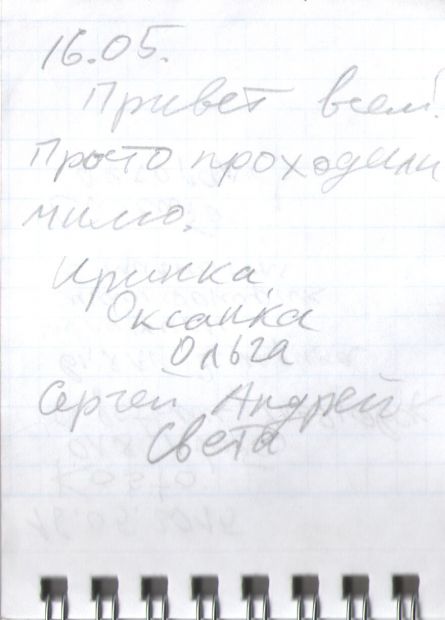 16.05.
Привет всем!
Просто проходили
мимо.
Иринка,
Оксанка
Ольга
Сергей Андрей
Света